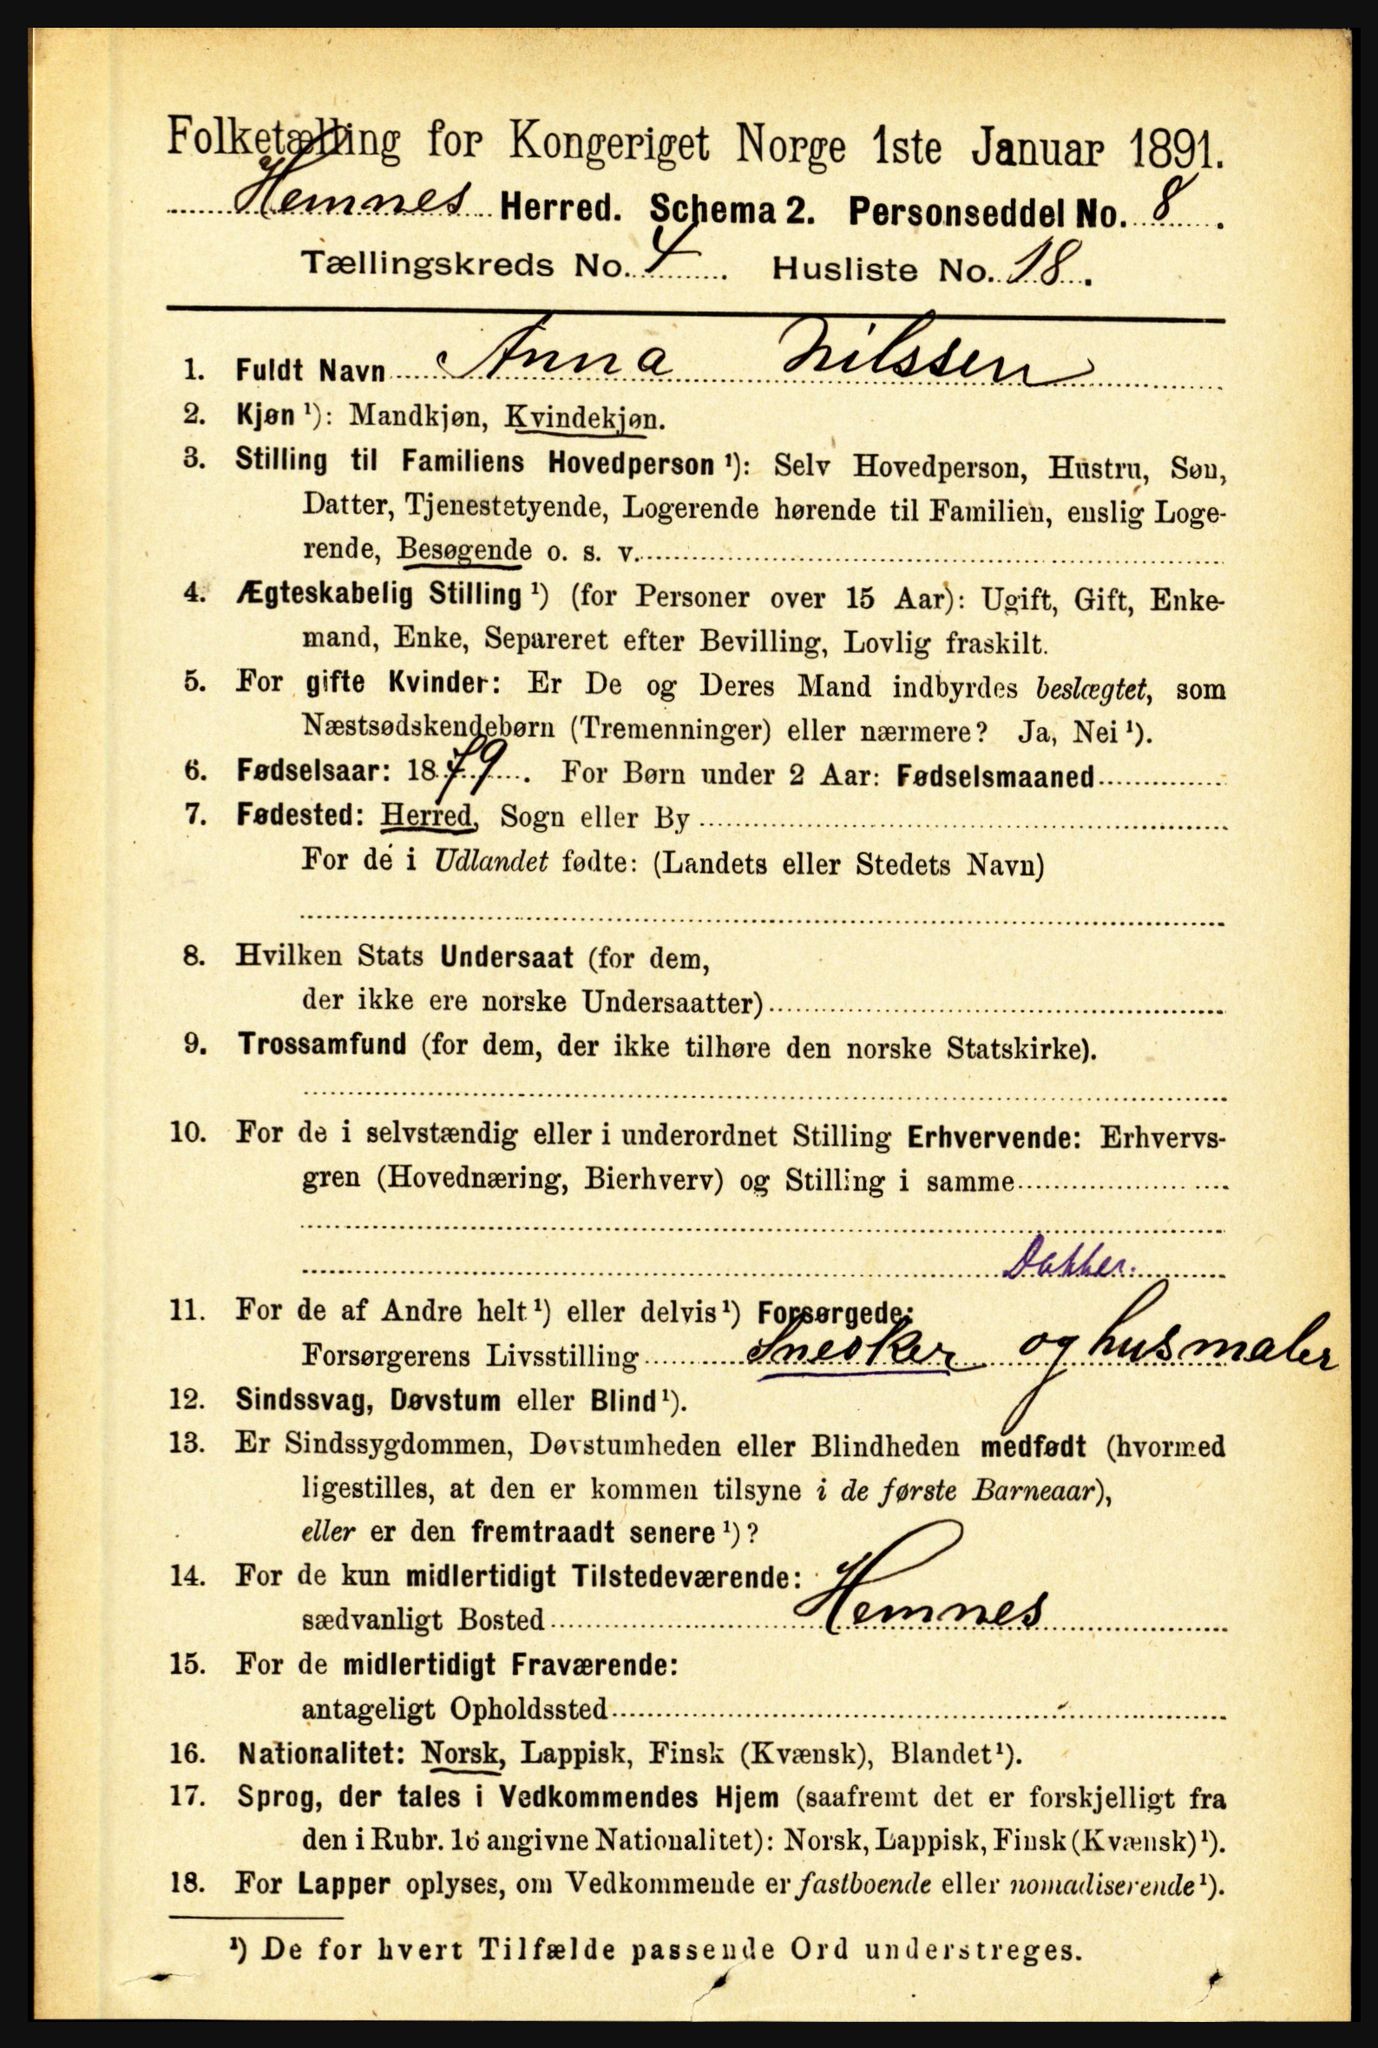 Folketælling for Kongeriget Norge 1ste Januar 1891.
Hemnes Herred. Schema 2. Personseddel No. 8.
Tællingskreds No. 4. Husliste No. 18.
1. Fuldt Navn Anna Nilssen
2. Kjøn ¹): Mandkjøn, Kvindekjøn.
3. Stilling til Familiens Hovedperson ¹): Selv Hovedperson, Hustru, Søn,
Datter, Tjenestetyende, Logerende hørende til Familien, enslig Loge-
rende, Besøgende o. s. v.
4. Ægteskabelig Stilling ¹) (for Personer over 15 Aar): Ugift, Gift, Enke-
mand, Enke, Separeret efter Bevilling, Lovlig fraskilt.
5. For gifte Kvinder: Er De og Deres Mand indbyrdes beslægtet, som
Næstsødskendebørn (Tremenninger) eller nærmere? Ja, Nei ¹).
6. Fødselsaar: 1879. For Børn under 2 Aar: Fødselsmaaned
7. Fødested: Herred, Sogn eller By
For de i Udlandet fødte: (Landets eller Stedets Navn)
8. Hvilken Stats Undersaat (for dem,
der ikke ere norske Undersaatter)
9. Trossamfund (for dem, der ikke tilhøre den norske Statskirke).
10. For de i selvstændig eller i underordnet Stilling Erhvervende: Erhvervs-
gren (Hovednæring, Bierhverv) og Stilling i samme
Datter.
11. For de af Andre helt ¹) eller delvis ¹) Forsørgede:
Forsørgerens Livsstilling Snedker og husmaler
12. Sindssvag, Døvstum eller Blind ¹).
13. Er Sindssygdommen, Døvstumheden eller Blindheden medfødt (hvormed
ligestilles, at den er kommen tilsyne i de første Barneaar),
eller er den fremtraadt senere ¹)?
14. For de kun midlertidigt Tilstedeværende:
sædvanligt Bosted Hemnes
15. For de midlertidigt Fraværende:
antageligt Opholdssted
16. Nationalitet: Norsk, Lappisk, Finsk (Kvænsk), Blandet ¹).
17. Sprog, der tales i Vedkommendes Hjem (saafremt det er forskjelligt fra
den i Rubr. 16 angivne Nationalitet): Norsk, Lappisk, Finsk (Kvænsk) ¹).
18. For Lapper oplyses, om Vedkommende er fastboende eller nomadiserende ¹).
¹) De for hvert Tilfælde passende Ord understreges.